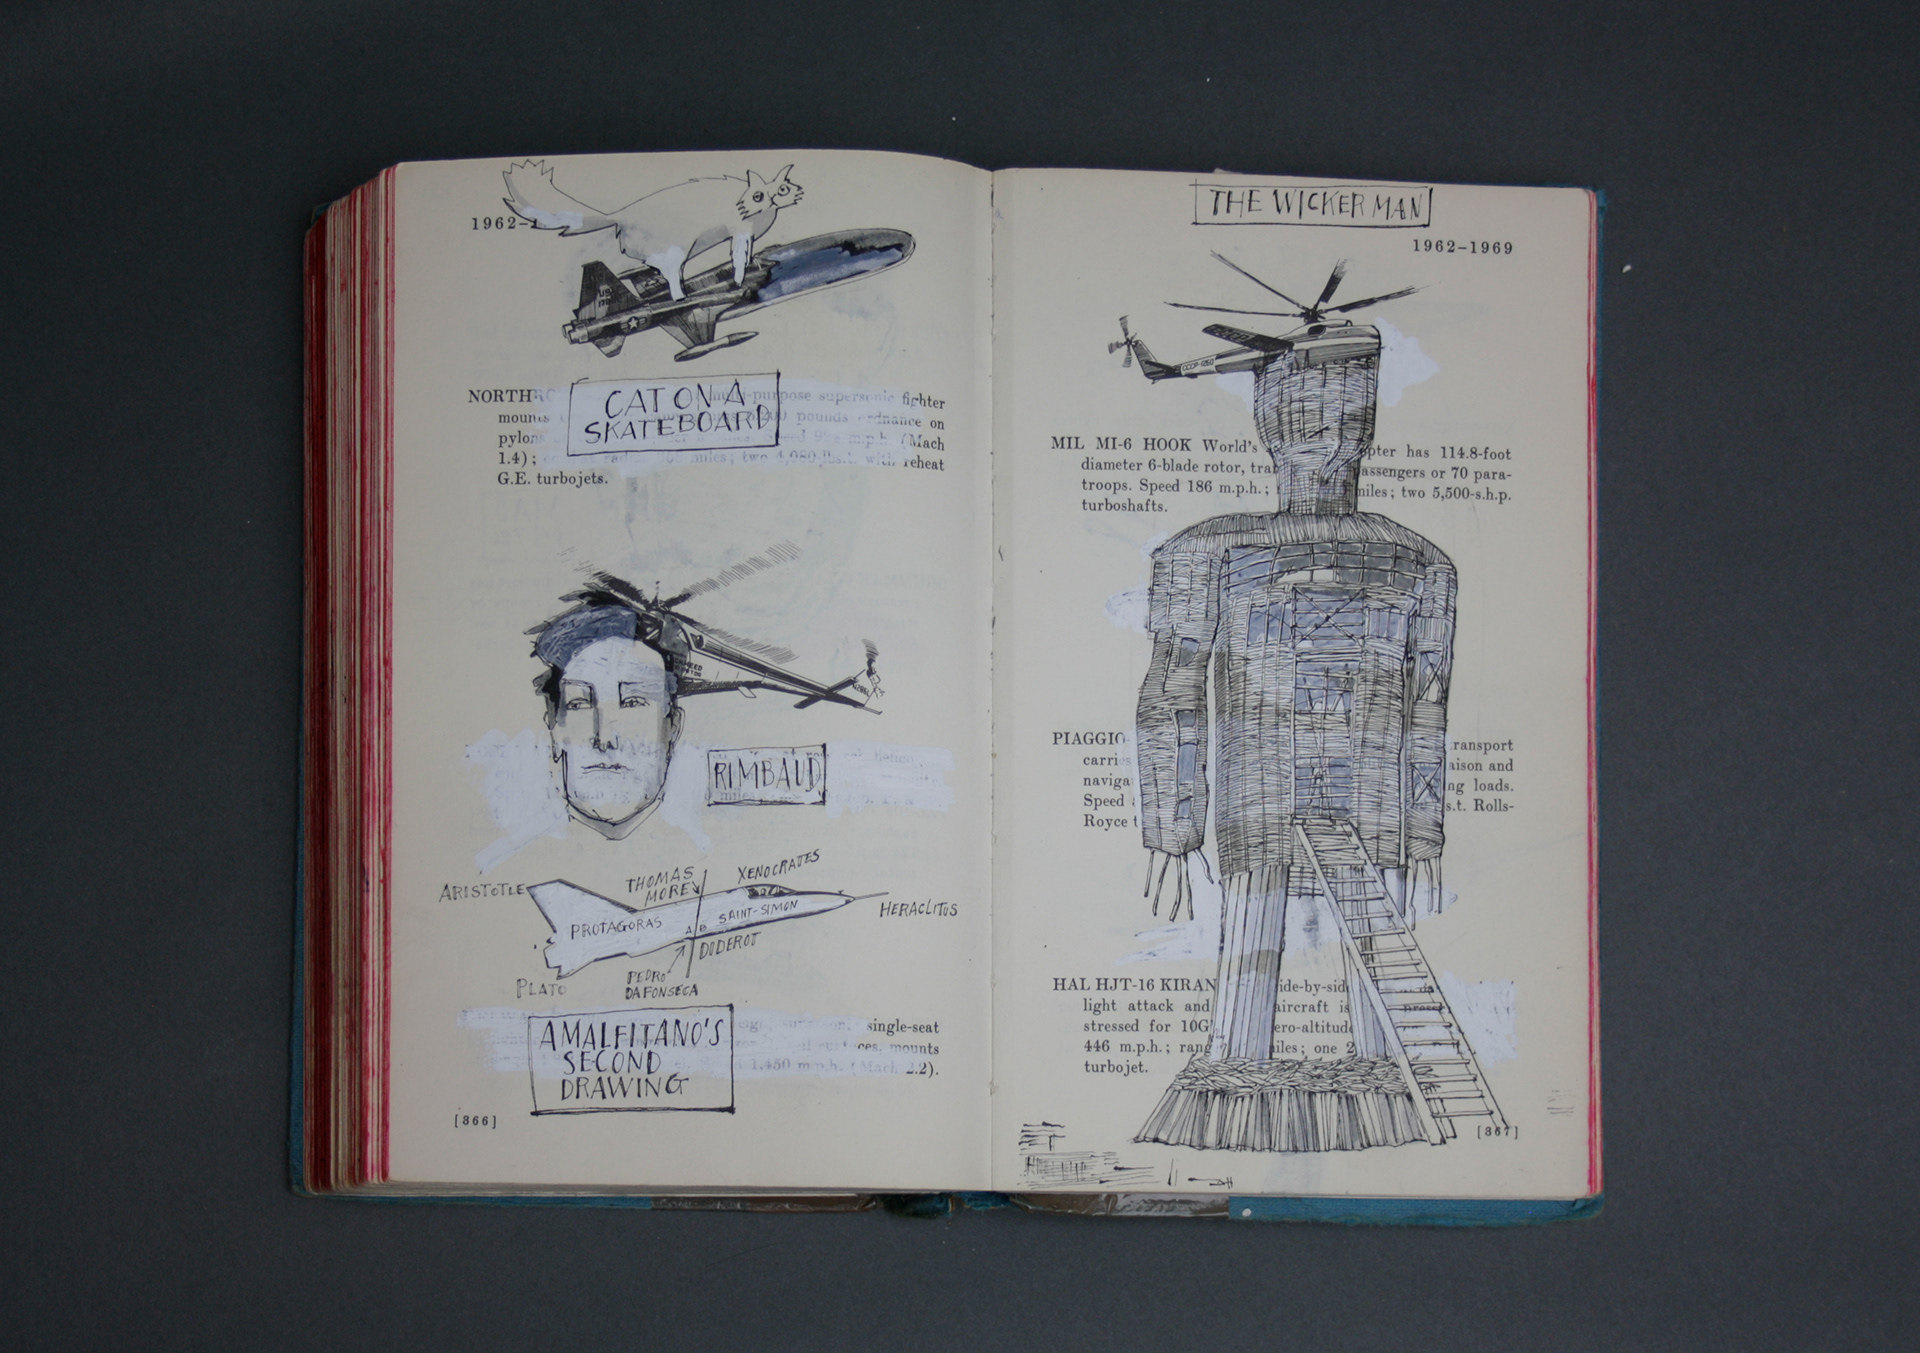 1962-1
US
NORTH
CAT ON A
SKATEBOARD
multi-purpose supersonic fighter
mounts pounds ordnance on
pylon m.p.h. (Mach
1.4); miles; two 4,080 lbs.t. with reheat
G.E. turbojets.
RIMBAUD
ARISTOTLE
THOMAS
MORE
XENOCRATES
PROTAGORAS
A B
SAINT-SIMON
HERACLITUS
DIDEROT
PLATO
PEDRO
DA FONSECA
AMALFITANO'S
SECOND
DRAWING
single-seat
surfaces, mounts
1,450 m.p.h. (Mach 2.2).
[366]
THE WICKER MAN
1962–1969
MIL MI-6 HOOK World's has 114.8-foot
diameter 6-blade rotor, passengers or 70 para-
troops. Speed 186 m.p.h.; miles; two 5,500-s.h.p.
turboshafts.
PIAGGIO ransport
carrie aison and
naviga ng loads.
Speed s.t. Rolls-
Royce t
HAL HJT-16 KIRAN ide-by-sid
light attack and aircraft is
stressed for 10G ero-altitude
446 m.p.h.; rang miles; one 2
turbojet.
[367]